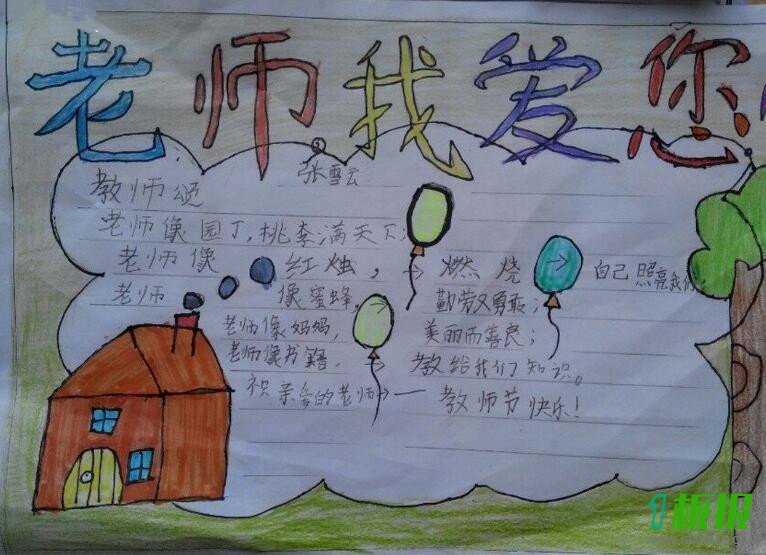 老师我爱您
张雪云
教师颂
老师像园丁,桃李满天下;
老师像红烛,→燃烧自己照亮我们;
老师像蜜蜂,勤劳又勇敢;
老师像妈妈,美丽而善良;
老师像书籍,教给我们知识。
祝亲爱的老师 — 教师节快乐!
1板报